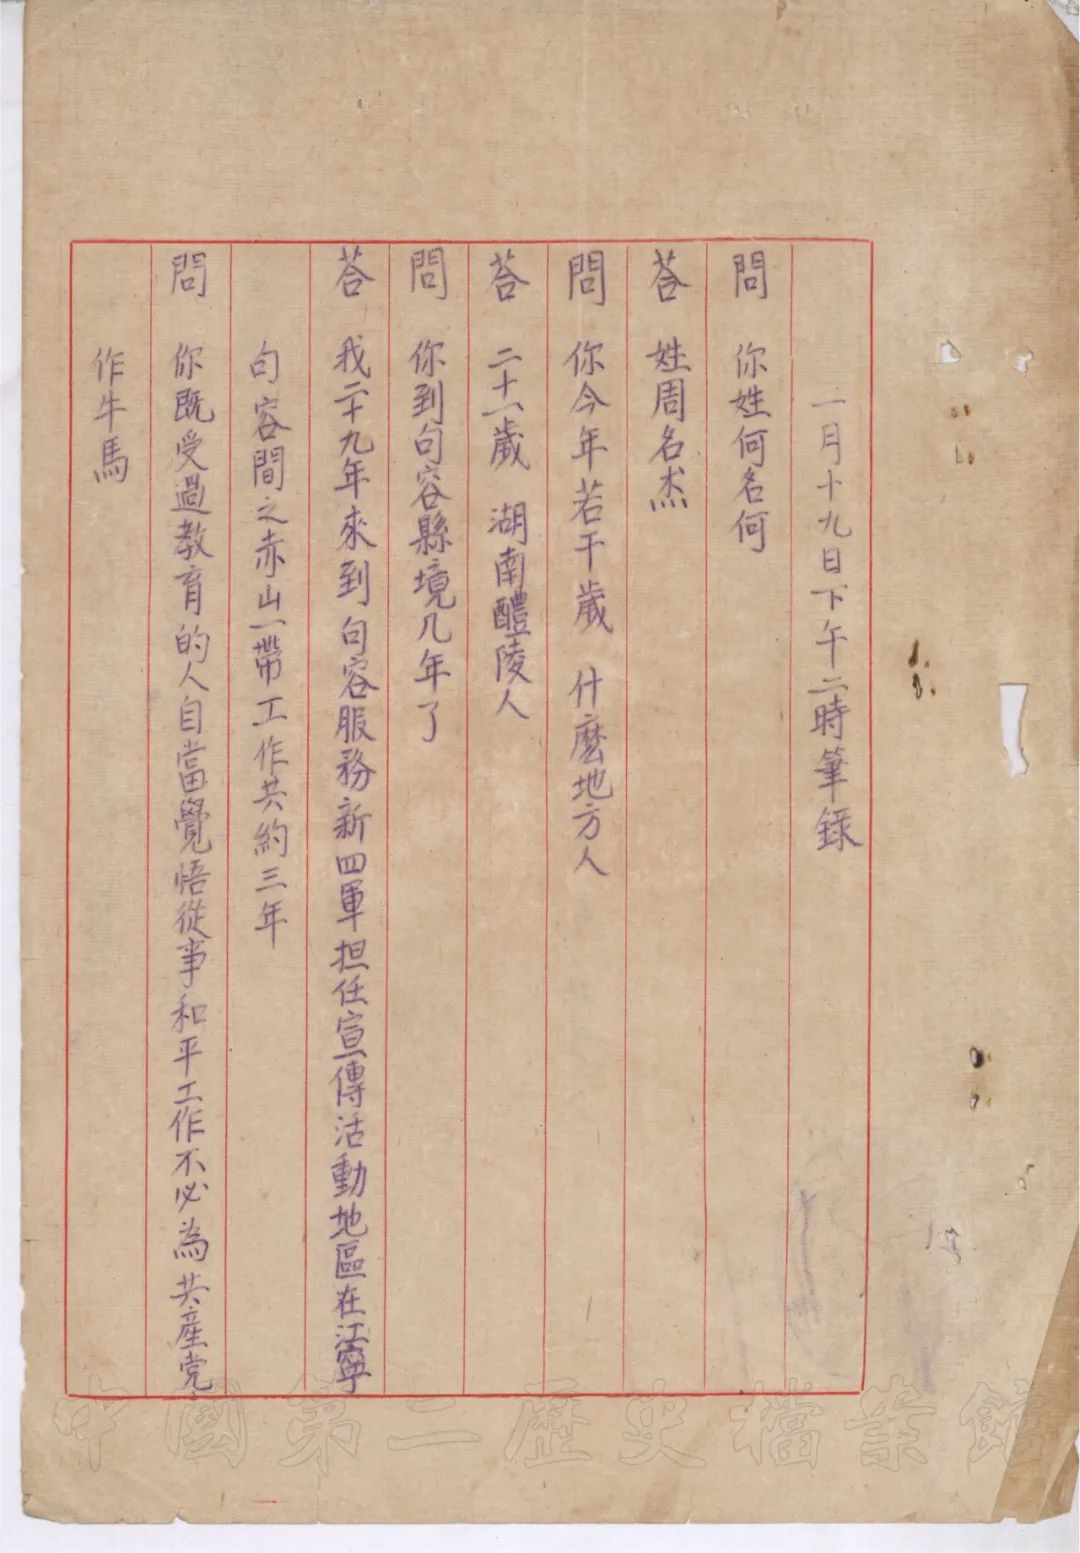 一月十九日下午二時筆録
問 你姓何名何
荅 姓周名杰
問 你今年若干歲 什麽地方人
荅 二十一歲 湖南醴陵人
問 你到句容縣境几年了
荅 我二十九年來到句容服務新四軍担任宣傳活動地區在江寧
句容間之赤山一帶工作共約三年
問 你既受過教育的人自當覺悟從事和平工作不必為共產党
作牛馬
中國第二歷史檔案館